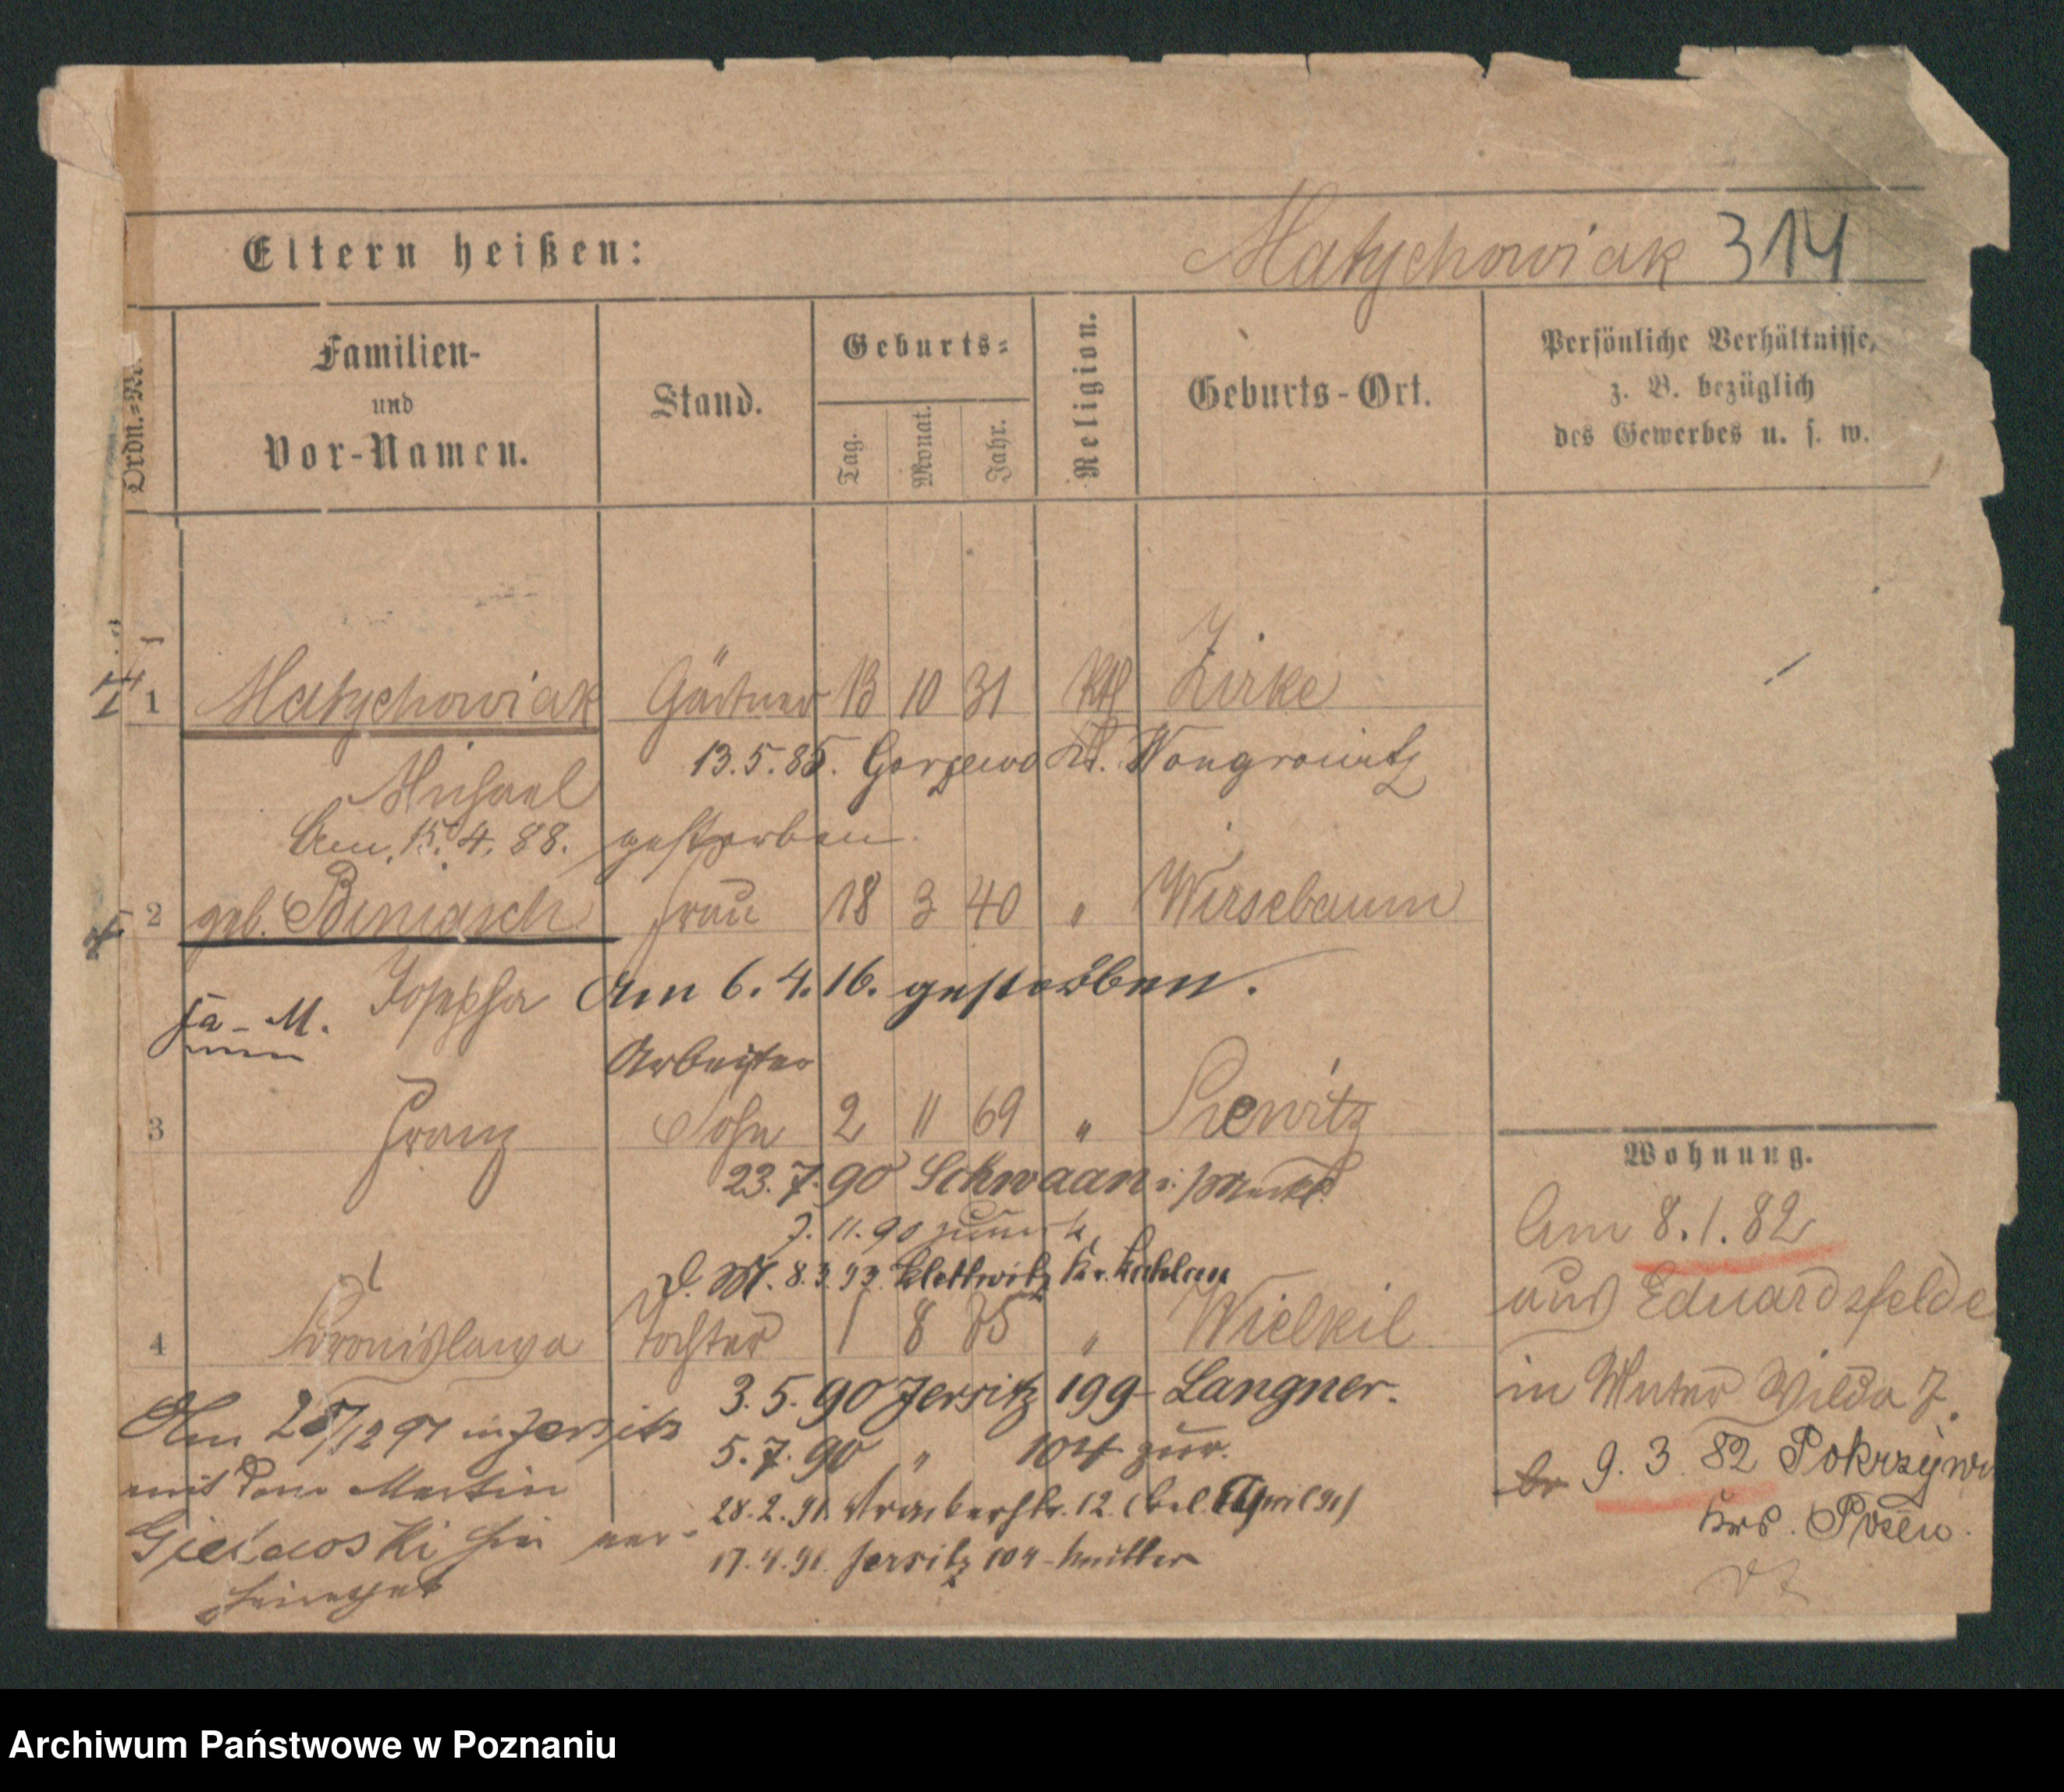 Eltern heißen:
Matychowiak 314
Ordn.-Nr.
Familien-
und
Vor-Namen.
Stand.
Geburts-
Tag.
Monat.
Jahr.
Religion.
Geburts-Ort.
Persönliche Verhältnisse,
z. B. bezüglich
des Gewerbes u. s. w.
1 Matychowiak Gärtner 13 10 31 Kth Zirke
Michael
13.5.85. Gorzewo Kr. Wongrowitz
Am 15.4.88. gestorben.
2 geb. Biniasch Frau 18 3 40 " Wirsebaum
Josepha Am 6.4.16. gestorben.
Fa - M.
Arbeiter
3 Franz Sohn 2 11 69 "
23.7.90 Schwaan i/Meckl.
7.11.90 zurück
d. M. 8.3.93 Klettwitz Kr. Kahlau
4 Bronislawa Tochter 1 8 75 " Wielkil
3.5.90 Jersitz 199 - Langner.
5.7.90 " 104 zur.
28.2.91 12 (bei April 91)
17.4.91. Jersitz 104 - Mutter
Am in Jersitz
mit dem Martin
hier ver-
heirathet
Wohnung.
Am 8.1.82
aus Eduardsfelde
in Unter Wilda 7.
9.3.82 Pokrzywn
Krs. Posen.
Archiwum Państwowe w Poznaniu